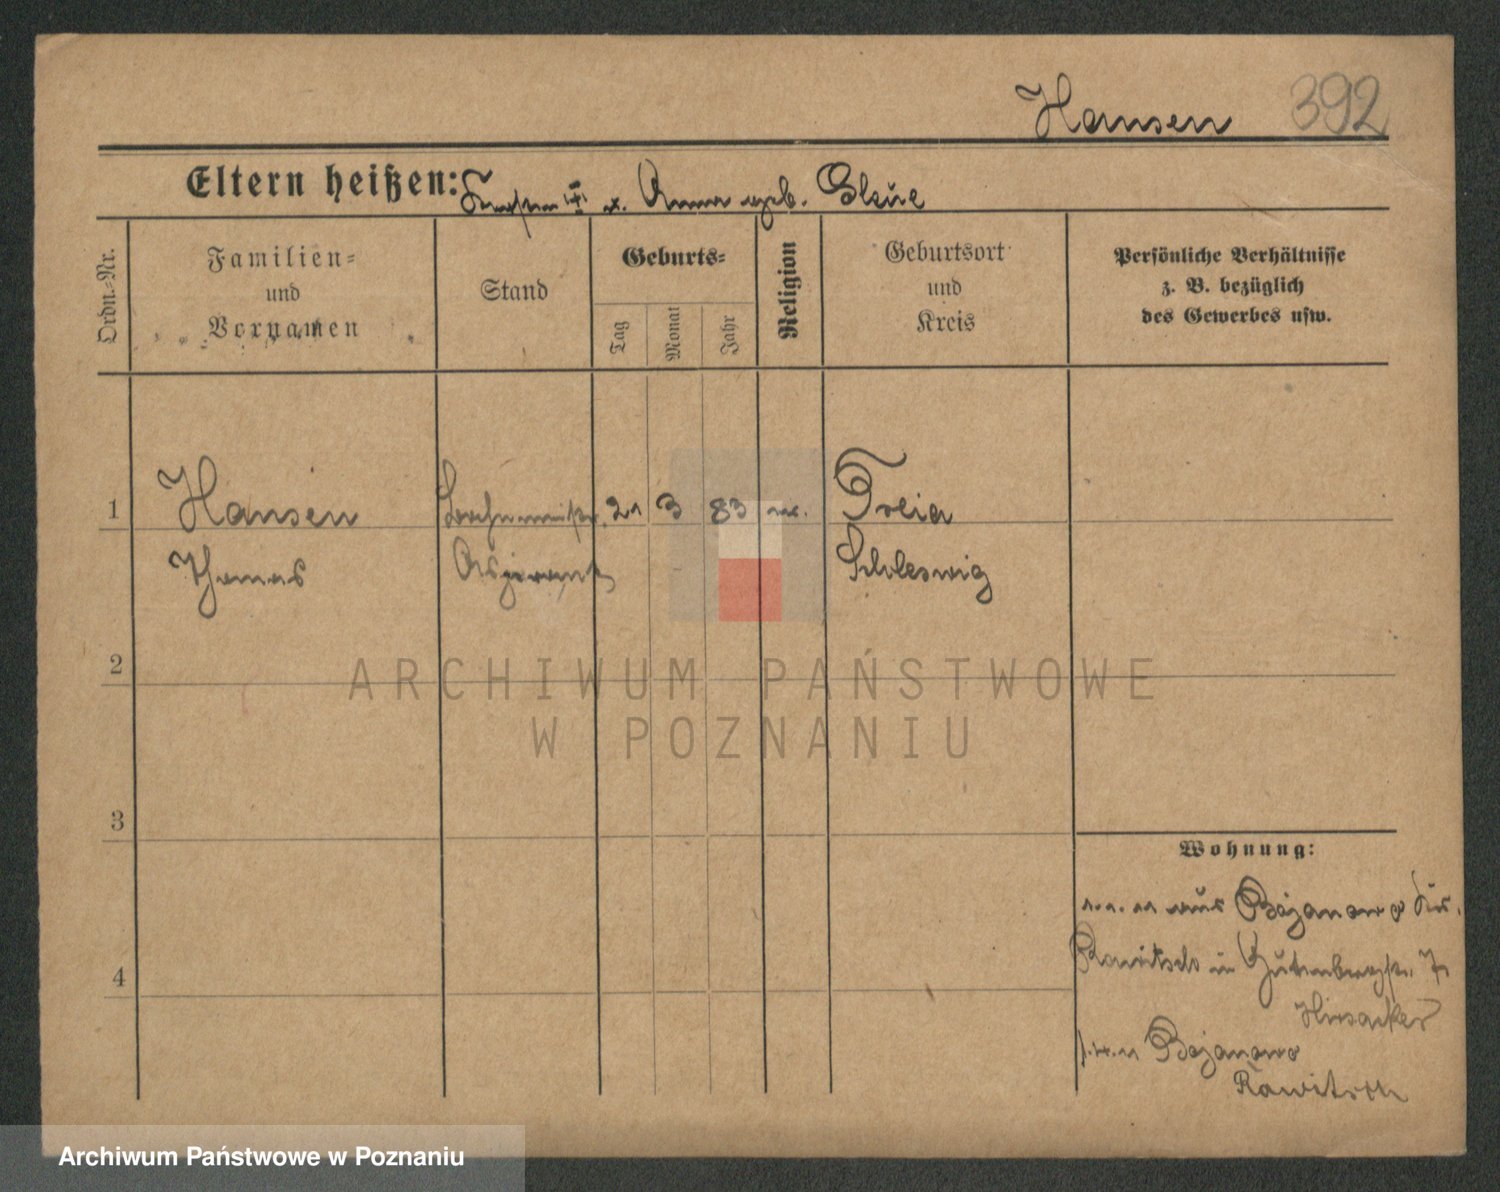 Hansen 392
Eltern heißen: u. Anna geb. Bleue
Ordn.-Nr.
Familien-
und
Vornamen
Stand
Geburts-
Tag
Monat
Jahr
Religion
Geburtsort
und
Kreis
Persönliche Verhältnisse
z. B. bezüglich
des Gewerbes usw.
1 Hansen 21 3 83 ev. Treia
Thomas Schleswig
2
3
4
Wohnung:
aus Bojanowo Krs.
Rawitsch in Gutenbergstr. 7
Bojanowo
Rawitsch
ARCHIWUM PAŃSTWOWE
W POZNANIU
Archiwum Państwowe w Poznaniu